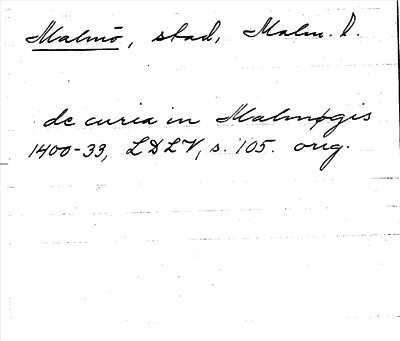 Malmö, stad, Malm. l.
de curia in Malmøgis
1400-33, LDLV, s. 105. orig.